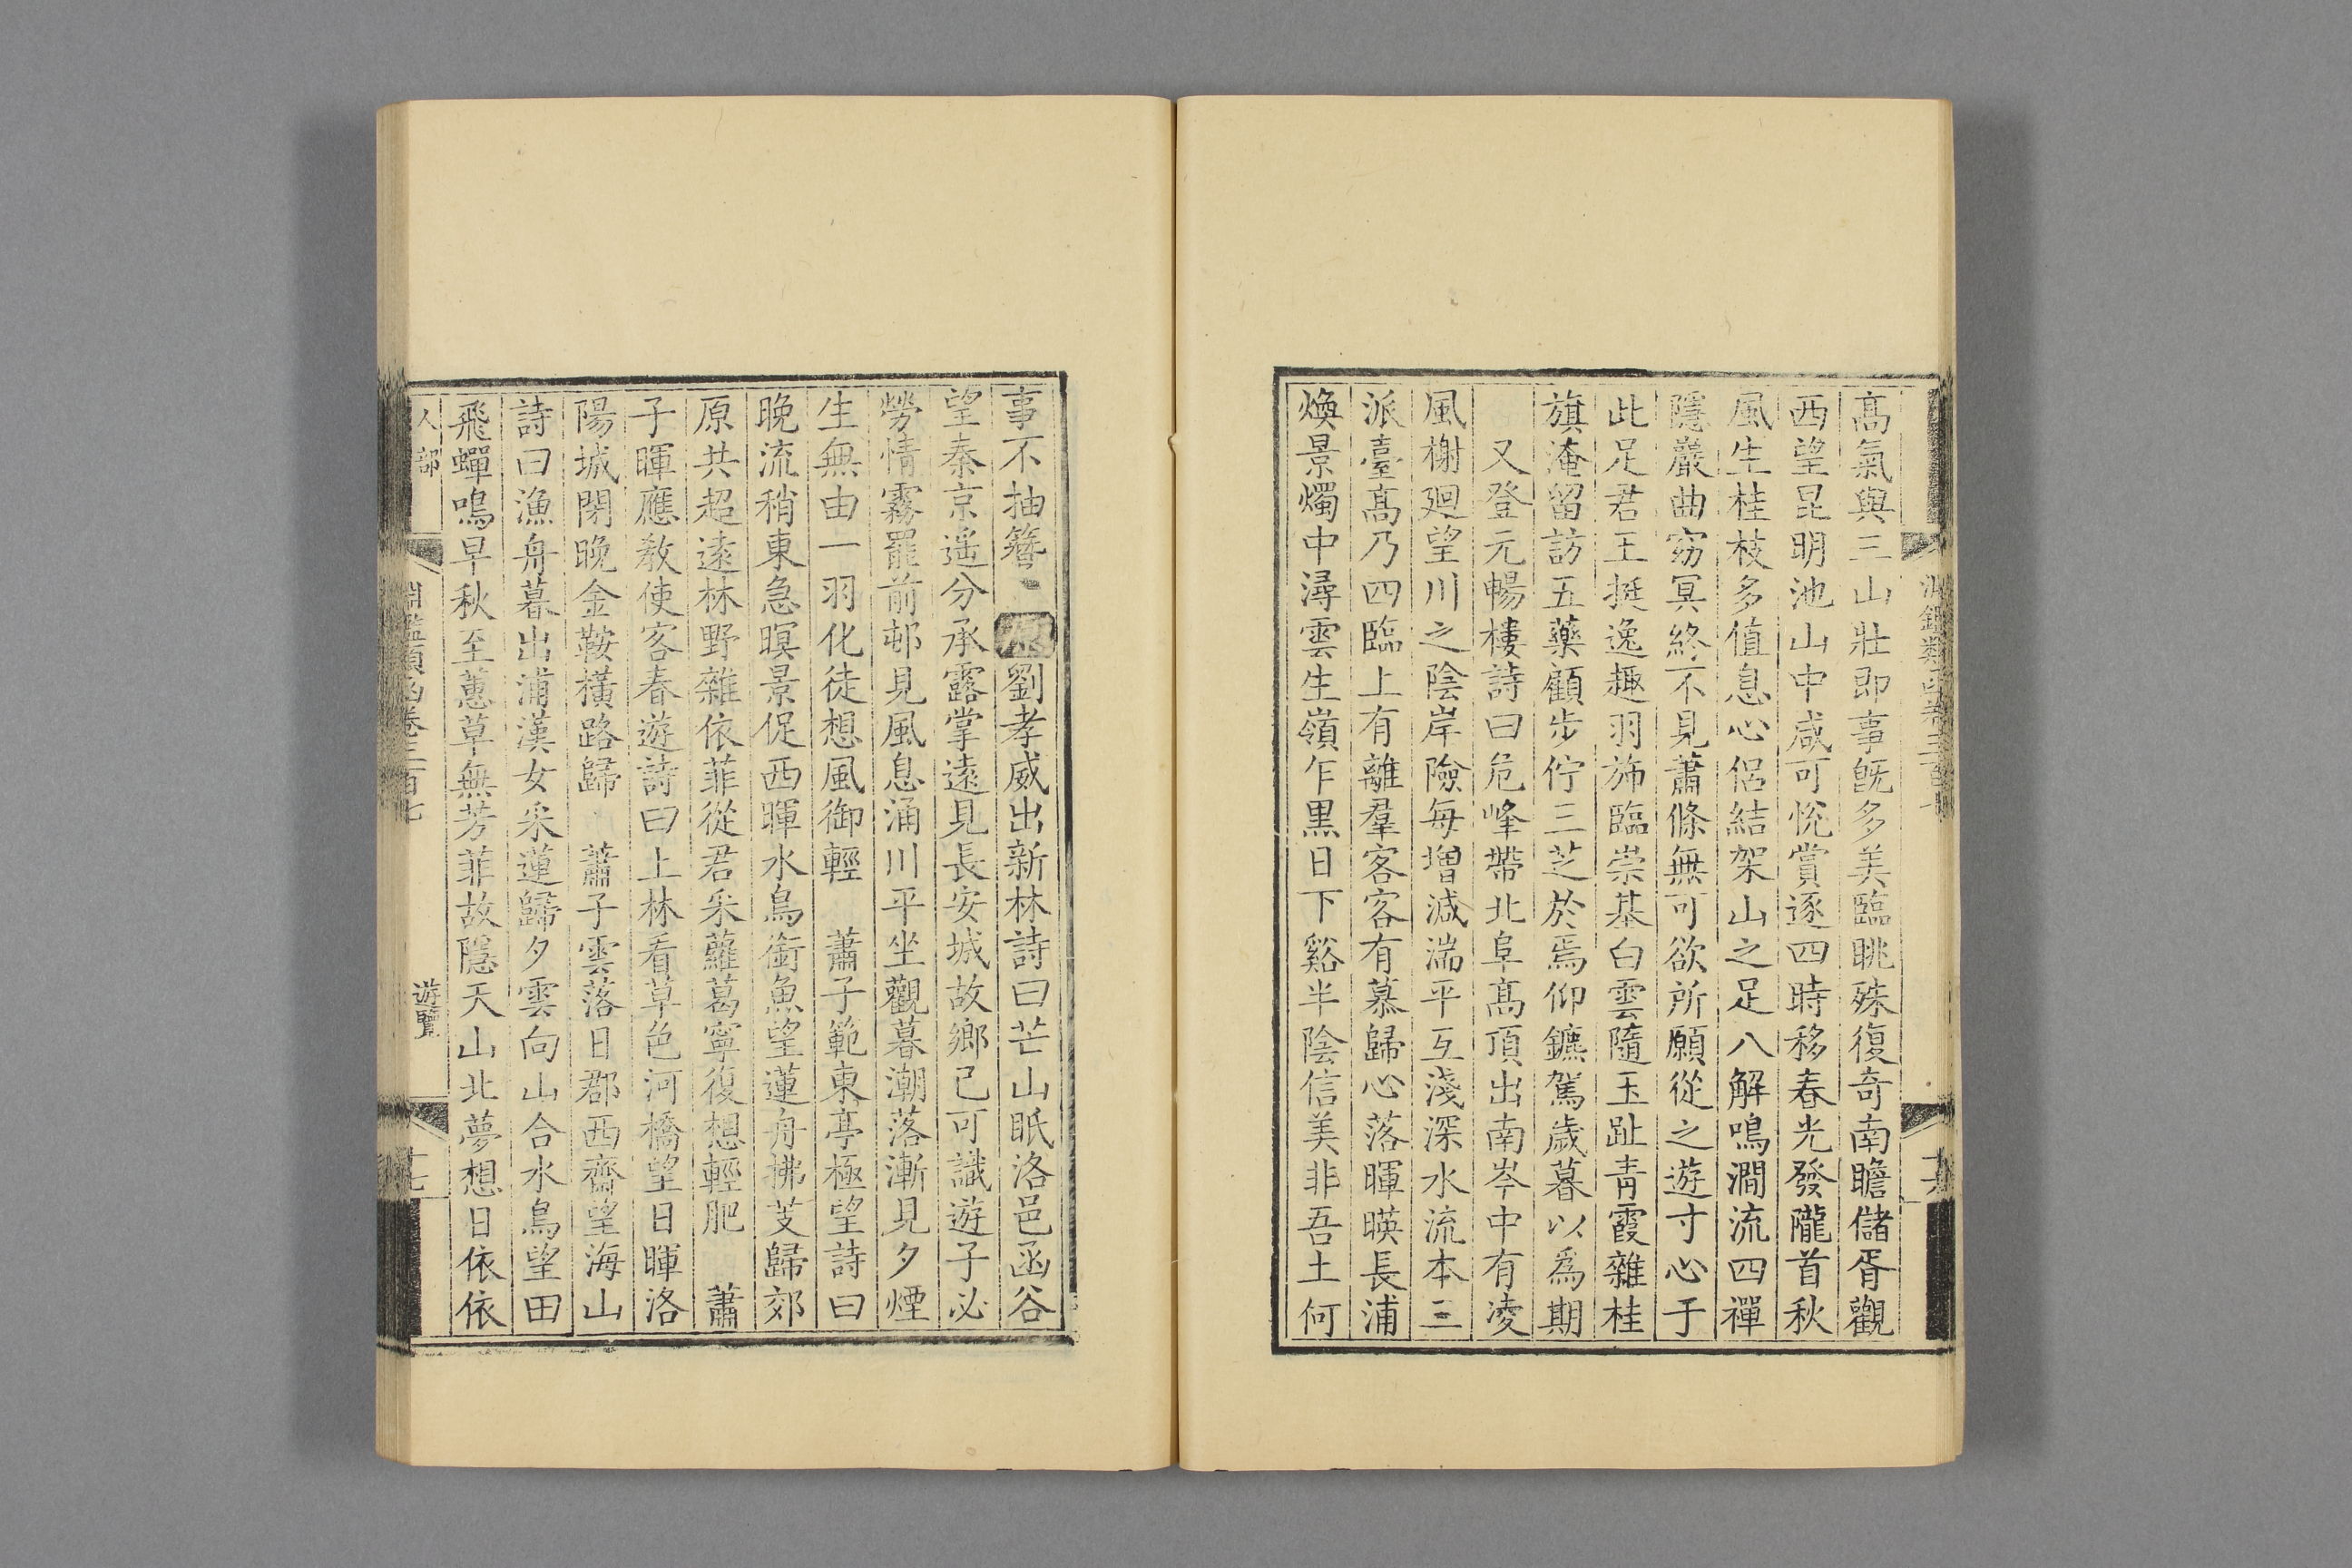 高氣與三山壯即事旣多美臨眺殊復奇南瞻儲胥觀
西望昆明池山中咸可悅賞逐四時移春光發隴首秋
風生桂枝多值息心侶結架山之足八解鳴澗流四禪
隱巖曲窈冥終不見蕭條無可欲所願從之遊寸心于
此足君王挺逸趣羽斾臨崇基白雲隨玉趾靑霞雜桂
旗淹留訪五藥顧步佇三芝於焉仰鑣駕歲暮以爲期
又登元暢樓詩曰危峰帶北阜高頂出南岑中有凌
風榭廻望川之陰岸險每增減湍平互淺深水流本三
派臺高乃四臨上有離羣客客有慕歸心落暉暎長浦
煥景燭中潯雲生嶺乍黒日下谿半陰信美非吾土何
事不抽簪
劉孝威出新林詩曰芒山眂洛邑函谷
望秦京遥分承露掌遠見長安城故鄉已可識遊子必
勞情霧罷前邨見風息涌川平坐觀暮潮落漸見夕煙
生無由一羽化徒想風御輕 蕭子範東亭極望詩曰
晚流稍東急暝景促西暉水鳥銜魚望蓮舟拂芰歸郊
原共超遠林野雜依菲從君采蘿葛寧復想輕肥 蕭
子暉應教使客春遊詩曰上林看草色河橋望日暉洛
陽城閉晚金鞍橫路歸 蕭子雲落日郡西齋望海山
詩曰漁舟暮出浦漢女采蓮歸夕雲向山合水鳥望田
飛蟬鳴早秋至蕙草無芳菲故隱天山北夢想日依依
人部
淵鑑類函卷三百七
遊覽
十七